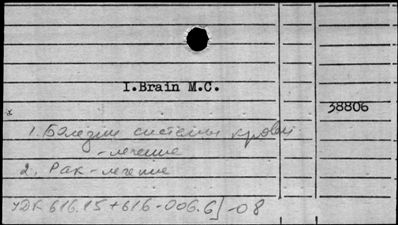 I.Brain M.C.
38806
x
1. Болезни системы крови
- лечение
2. Рак - лечение
УДК 616.15+616-006.6]-08